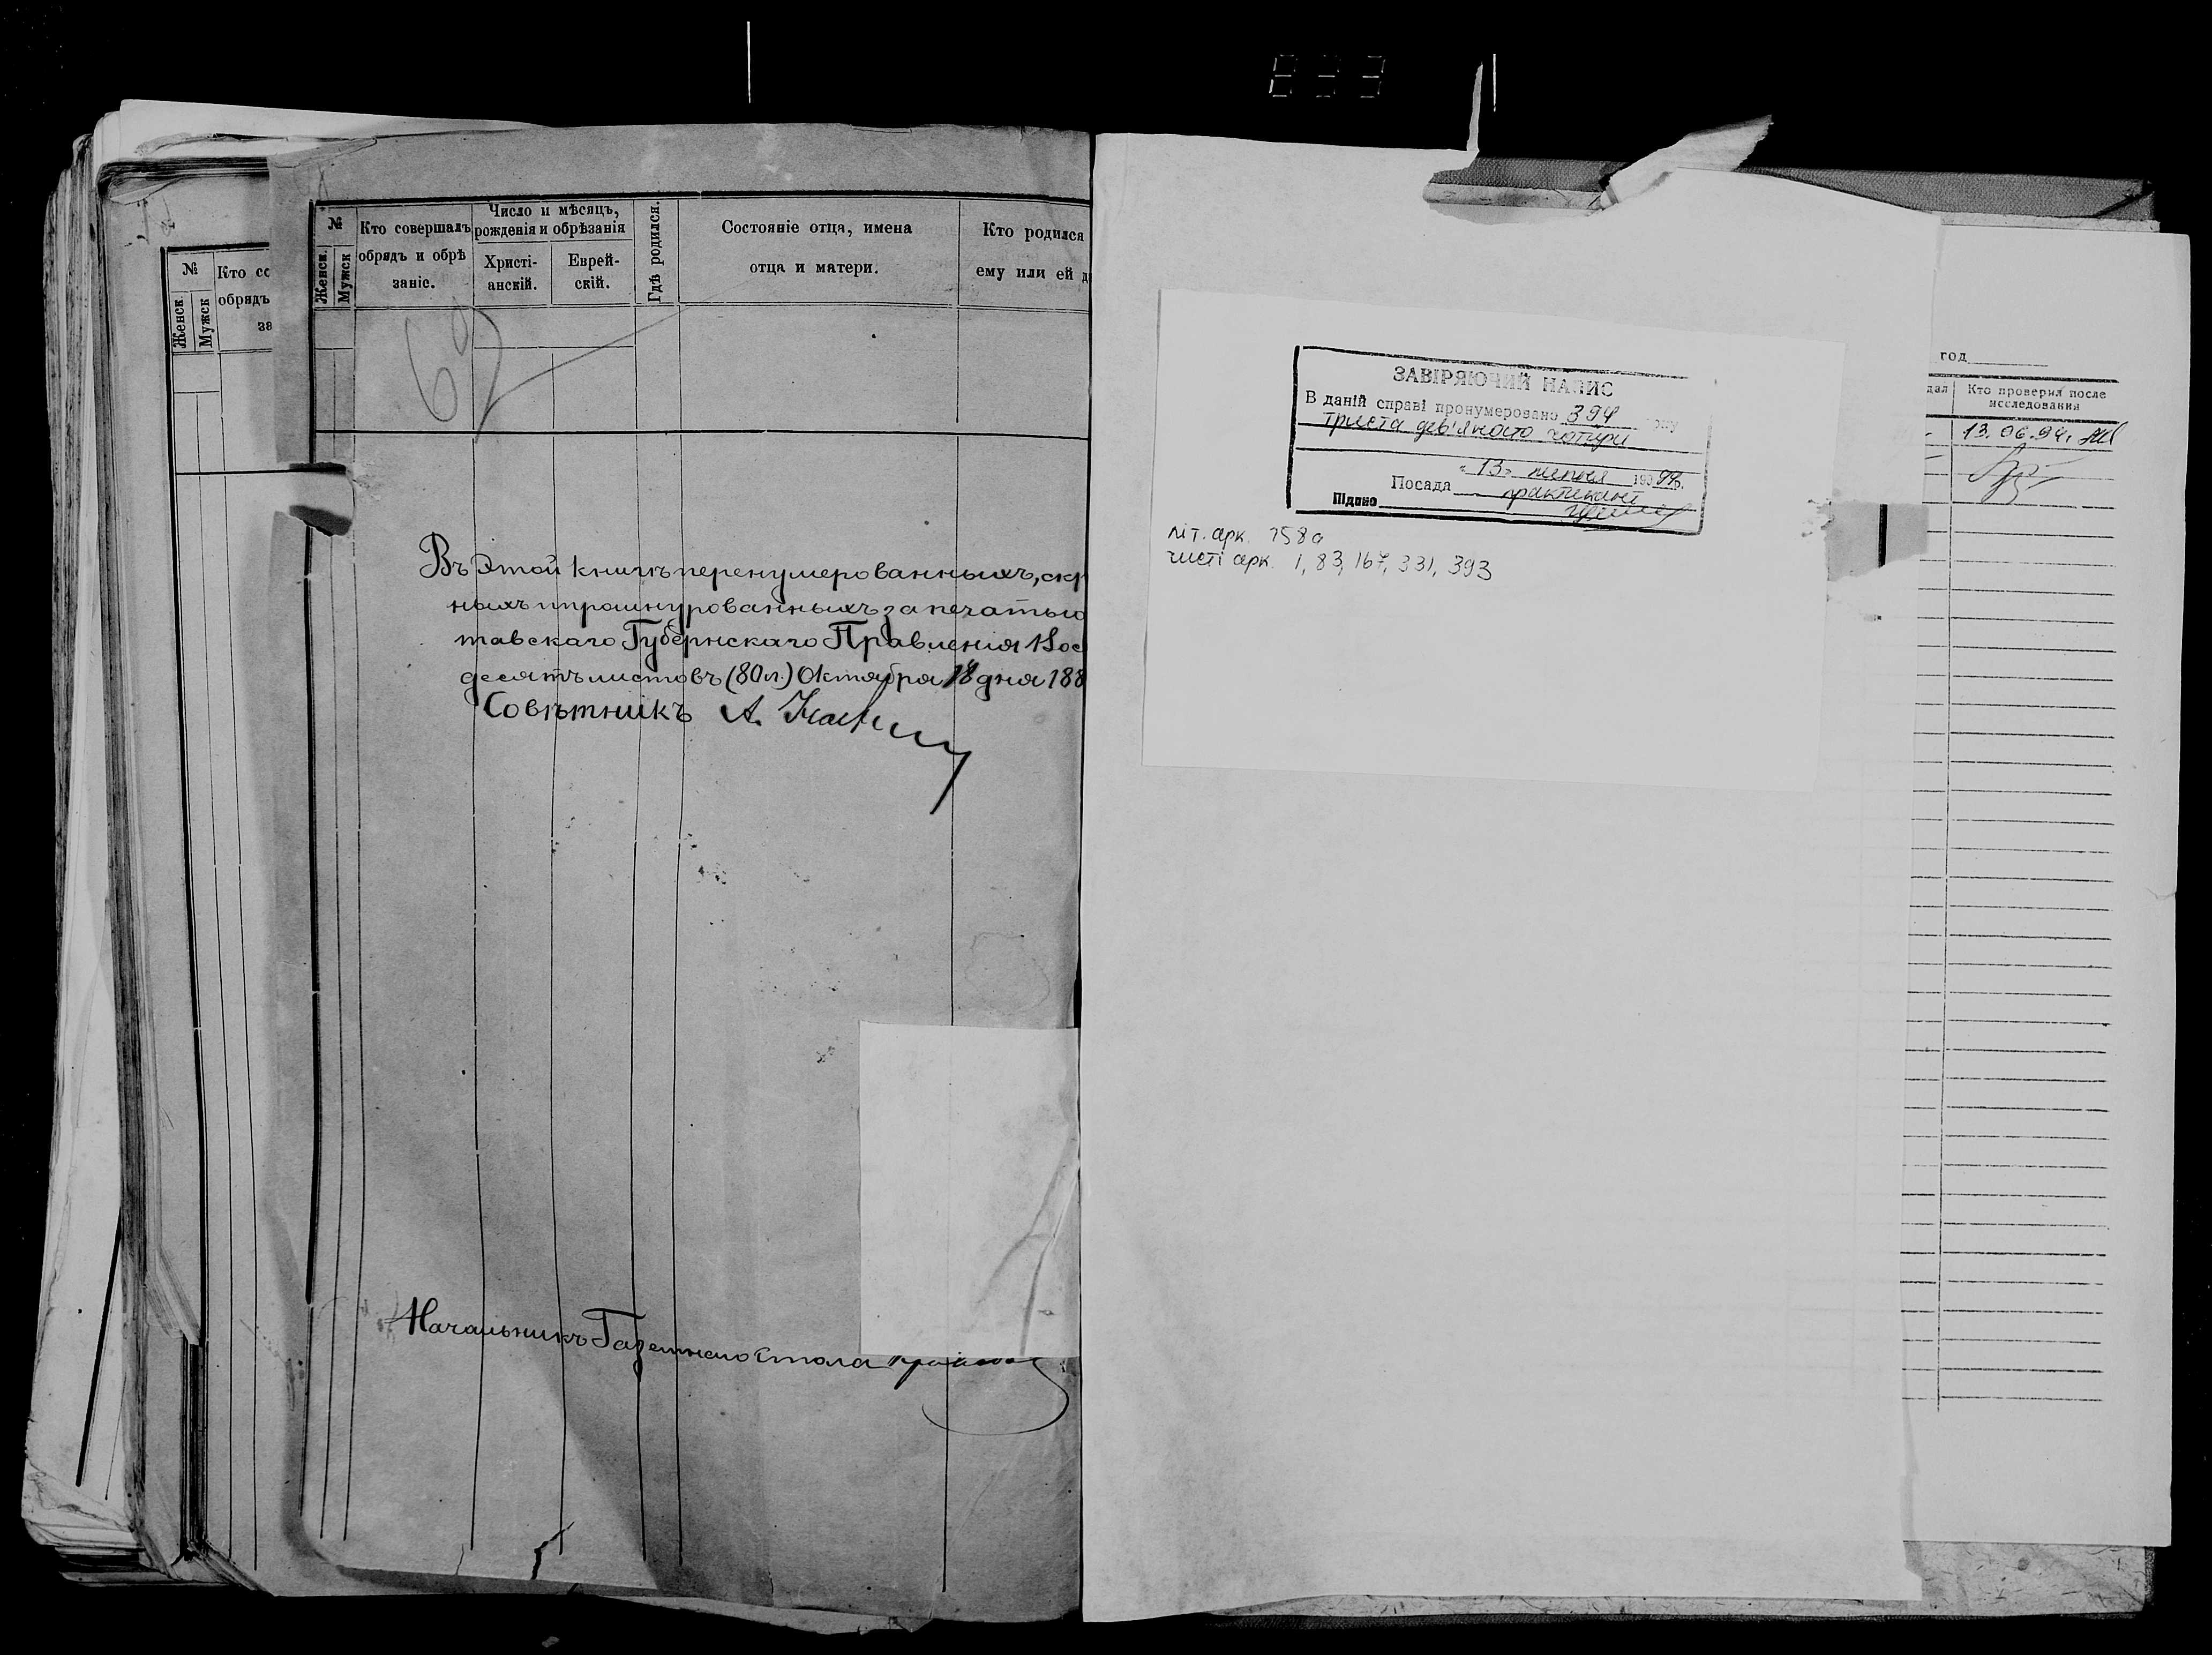 №
Кто со
обрядъ
за
Женск
Мужск
№
Женск.
Мужск
Кто совершалъ
обрядъ и обрѣ
заніе.
Число и мѣсяцъ,
рожденія и обрѣзанія
Христі-
анскій.
Еврей-
скій.
Гдѣ родился.
Состояніе отца, имена
отца и матери.
Кто родился
ему или ей д
60
Въ этой книгѣ перенумерованныхъ, скр
ныхъ и прошнурованныхъ за печатью
тавскаго Губернскаго Правленія Вос
десятъ листовъ (80 л.) Октября 18 дня 188
Совѣтникъ А.
Начальникъ Газетнаго Стола
ЗАВІРЯЮЧИЙ НАПИС
В даній справі пронумеровано 394
триста дев'яносто чотири
"13" 1994
Посада практикант
Підпис
літ. арк. 258а
чисті арк. 1, 83, 167, 331, 393
год
дал
Кто проверил после
исследования
13.06.94.